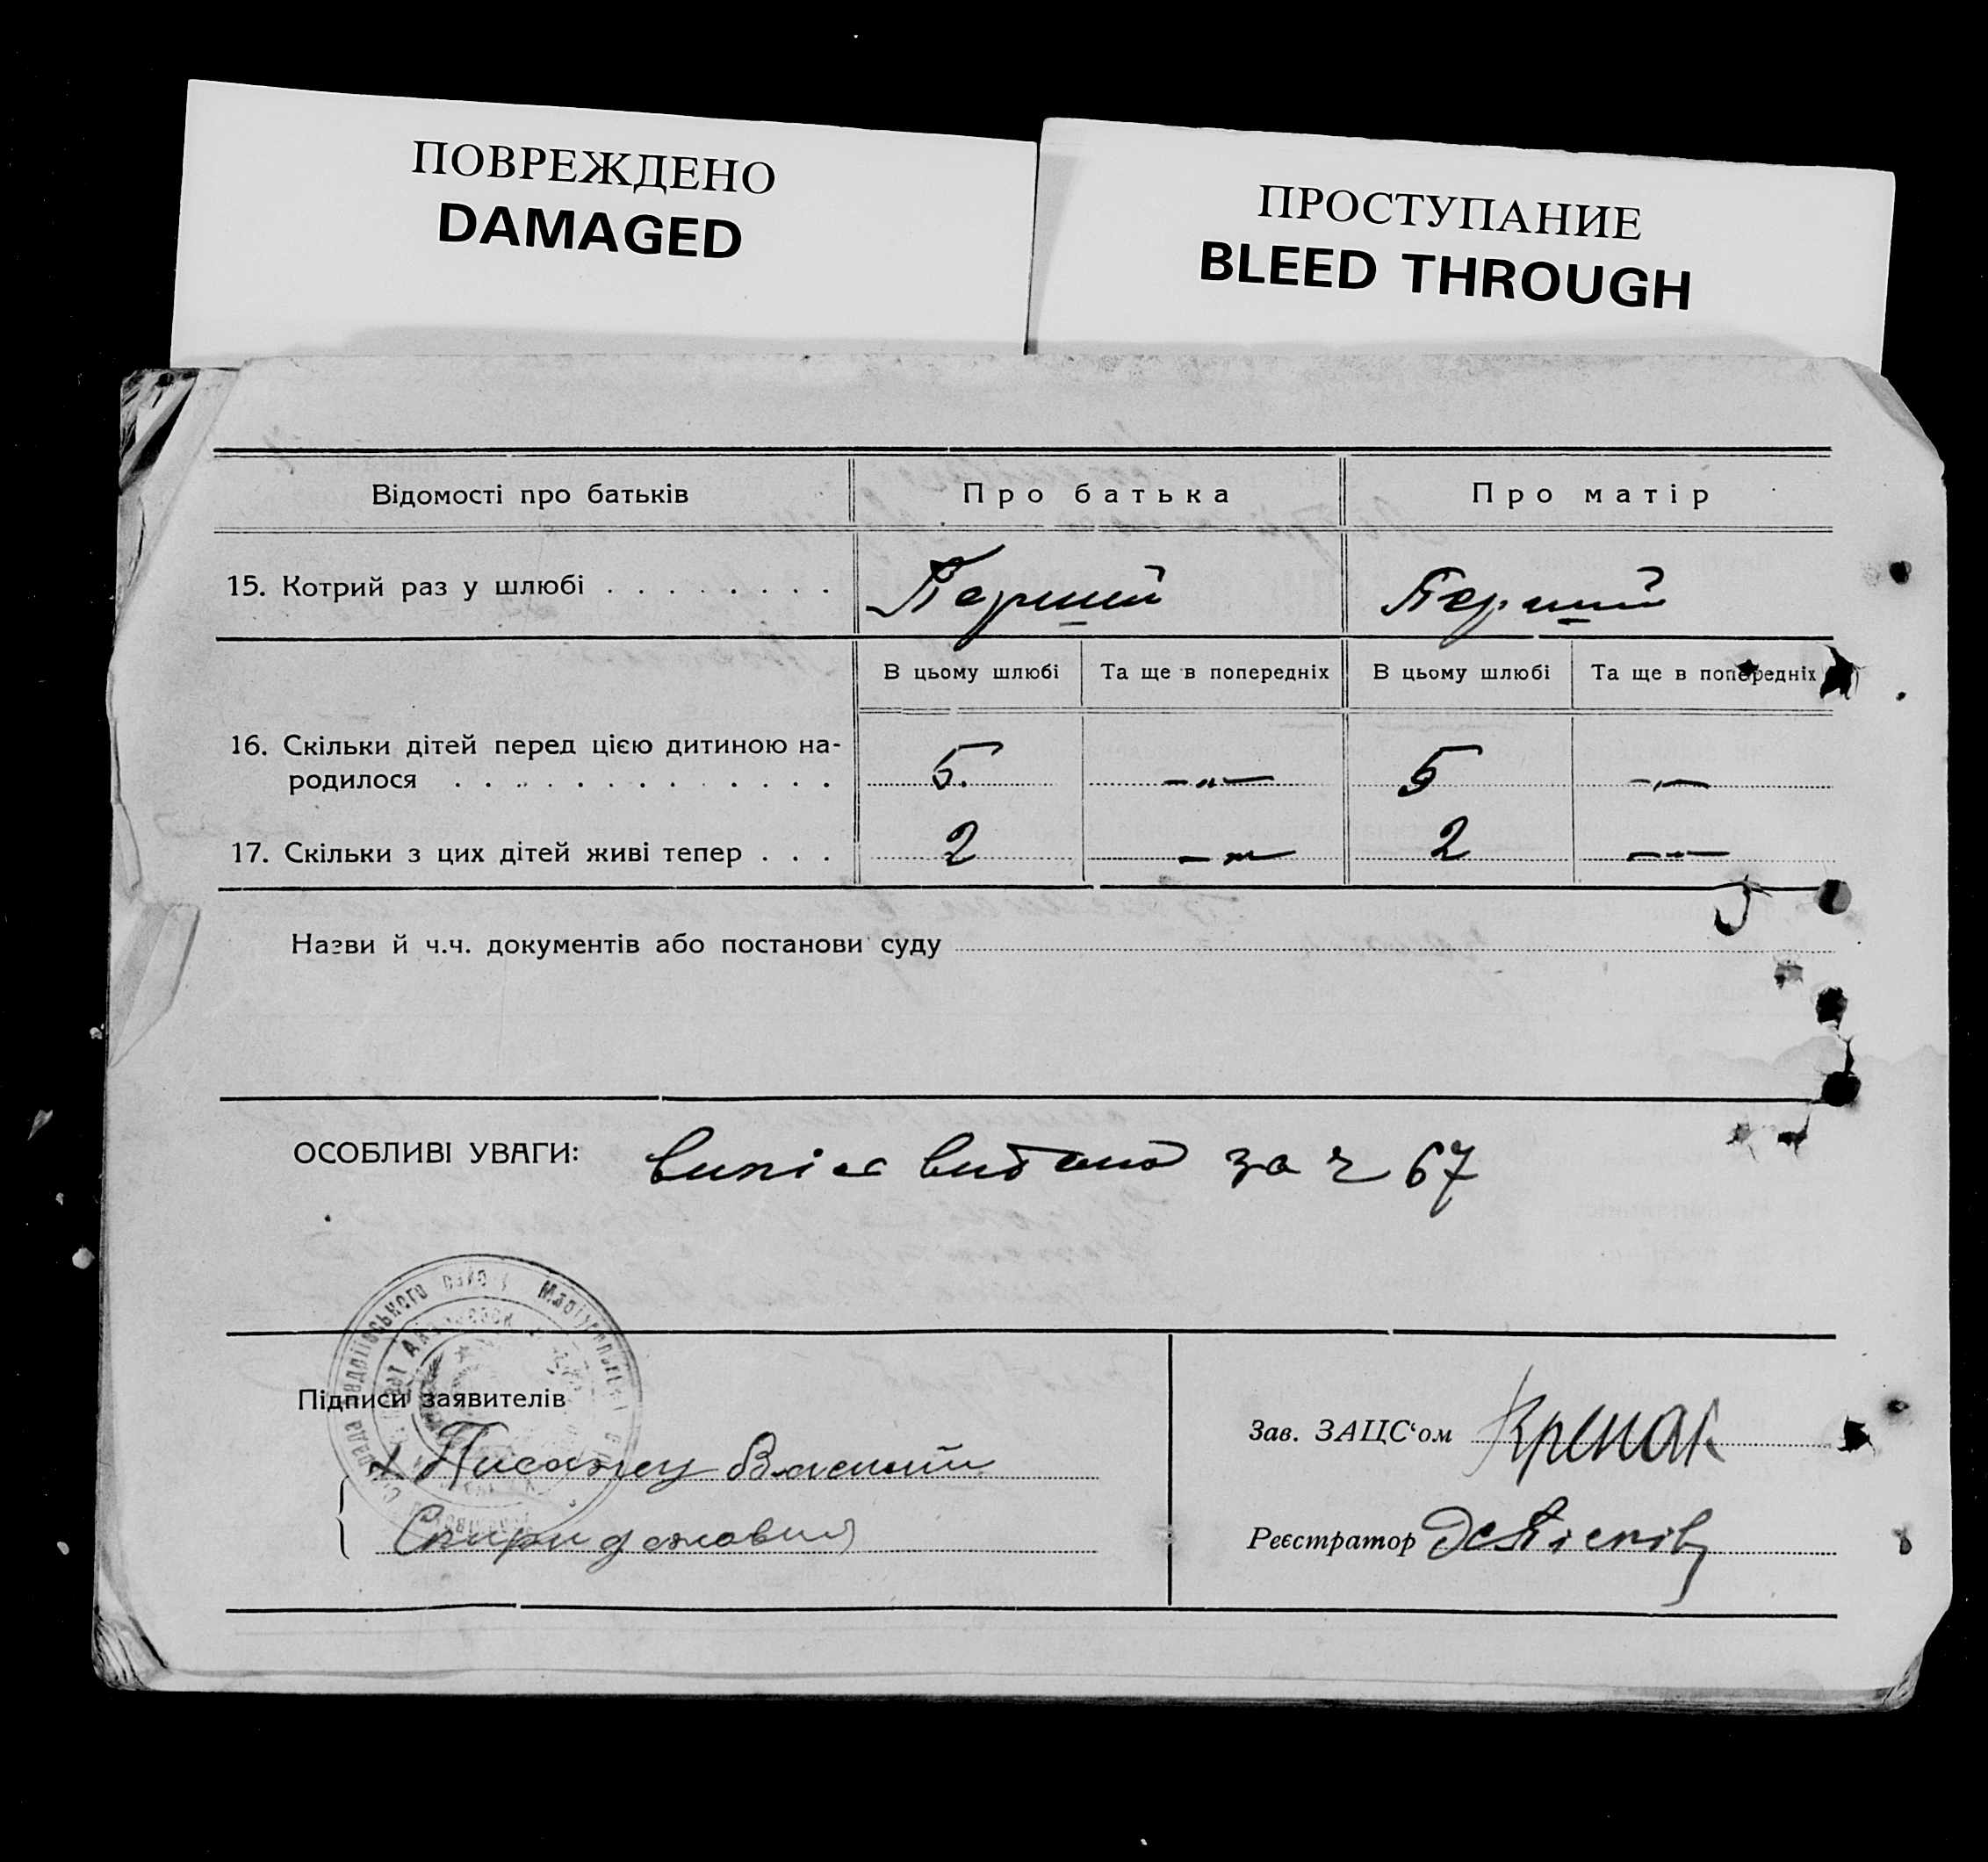 ПОВРЕЖДЕНО
DAMAGED
ПРОСТУПАНИЕ
BLEED THROUGH
Відомості про батьків
Про батька
Про матір
15. Котрий раз у шлюбі . . . . . . . .
Перший
Перший
В цьому шлюбі
Та ще в попередніх
В цьому шлюбі
Та ще в попередніх
16. Скільки дітей перед цією дитиною на-
родилося . . . . . . . . . . . . .
5.
—„—
5
—„—
17. Скільки з цих дітей живі тепер . . .
2
—„—
2
—„—
Назви й ч.ч. документів або постанови суду
ОСОБЛИВІ УВАГИ: випіс видано за ч 67
району Маріупольської
Підписи заявителів
Василий
Спиридонович
Зав. ЗАЦС‘ом
Реєстратор